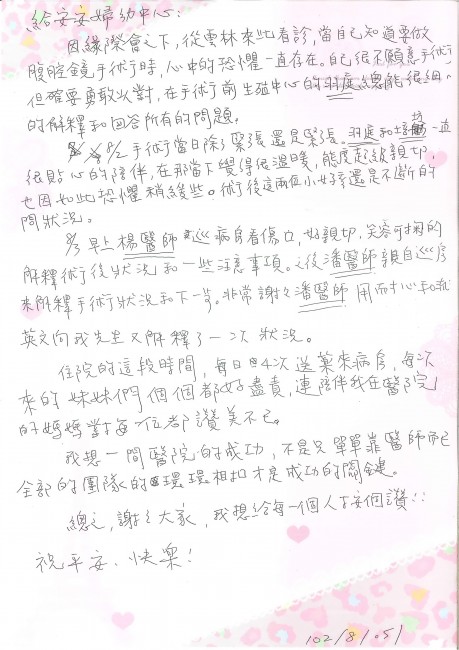 給安安婦幼中心:
因緣際會之下,從雲林來此看診,當自己知道要做
腹腔鏡手術時,心中的恐懼一直存在。自己很不願意手術
但確要勇敢以對,在手術前生殖中心的羽庭總能很細心
的解釋和回答所有的問題。
8/2手術當日除了緊張還是緊張。羽庭和 一直
很貼心的陪伴,在那當下覺得很溫暖,態度超級親切,
也因如此恐懼稍緩些。術後這兩位小女孩還是不斷的
問狀況。
8/3早上楊醫師巡病房看傷口,好親切,笑容可掬的
解釋術後狀況和一些注意事項。之後潘醫師親自巡房
來解釋手術狀況和下一步。非常謝謝潘醫師用耐心和流
英文向我先生又解釋了一次狀況。
住院的這段時間,每日4次送藥來病房,每次
來的妹妹們個個都好盡責,連陪伴我在醫院
的媽媽對每一位都讚美不已。
我想一間醫院的成功,不是只單單靠醫師而已
全部的團隊的環環相扣才是成功的關鍵。
總之,謝謝大家,我想給每一個人按個讚!!
祝平安、快樂!
102/8/05